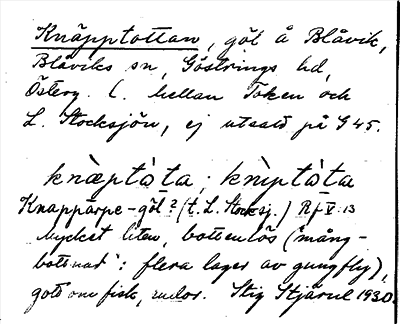 Knäpptottan, göl å Blåvik,
Blåviks sn, Göstrings hd,
Österg. l. mellan Token och
L. Stocksjön, ej utsatt på G 45.
knæ̀ptȧ̀ta, knìptȧ̀ta
Knapparpe-göl? (t. L. Stocksj.) Rf V: 13
mycket liten, bottenlös (mång-
bottnad: flera lager av gungfly),
gott om fisk, rudor. Stig Stjärul 1930.